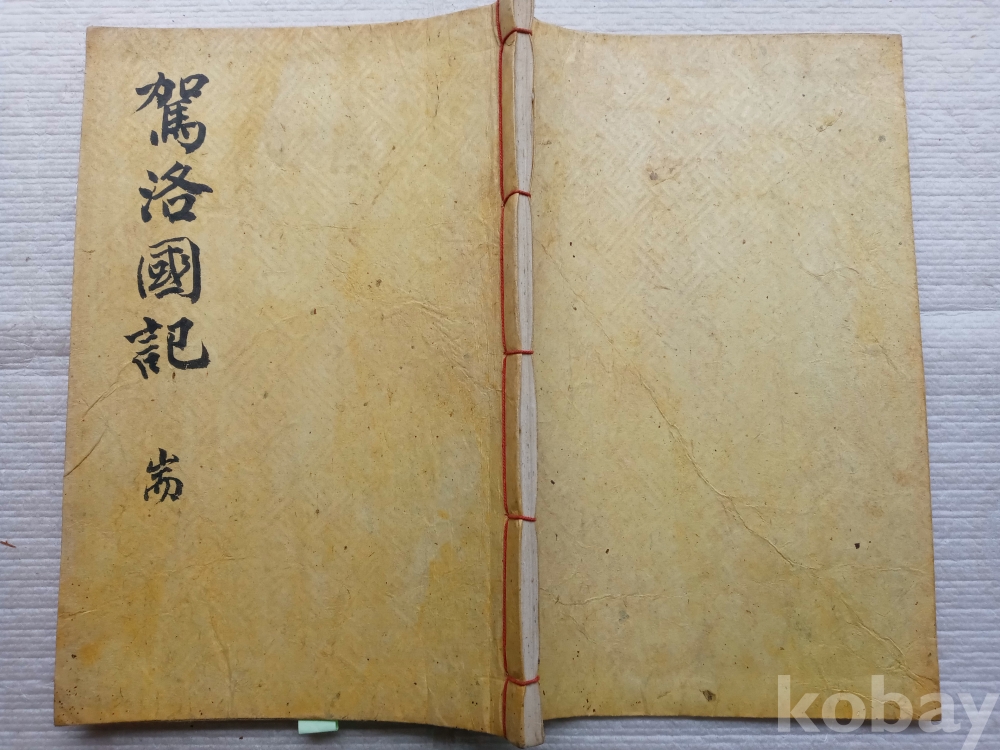 駕洛國記
耑
kobay